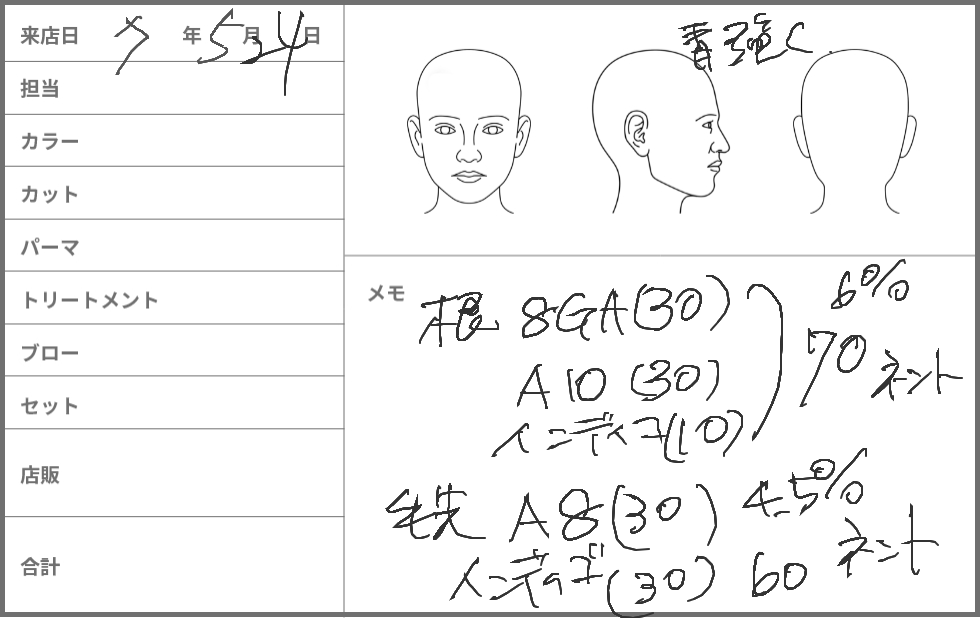 来店日 7年5月24日
担当
カラー
カット
パーマ
トリートメント
ブロー
セット
店販
合計
青強く
メモ
根 8GA(30)
A10(30)
インディゴ(10)
6%
70 ネント
毛先 A8(30) 4.5%
インディゴ(30) 60 ネント